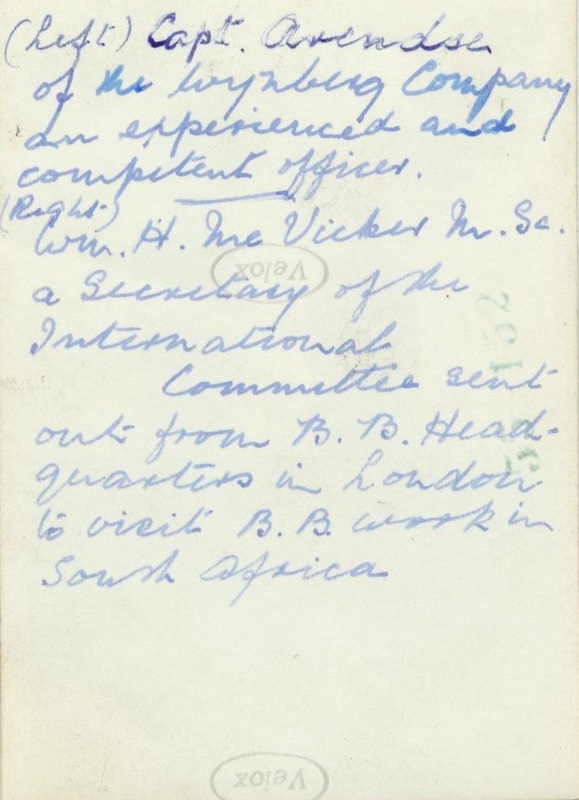 (Left) Capt. Arendse
of the Wynberg Company
an experienced and
competent officer.
(Right)
Wm. H. Mc Vicker M. Sc.
Velox
a Secretary of the
International
Committee sent
out from B. B. Head-
quarters in London
to visit B. B. work in
South Africa
Velox